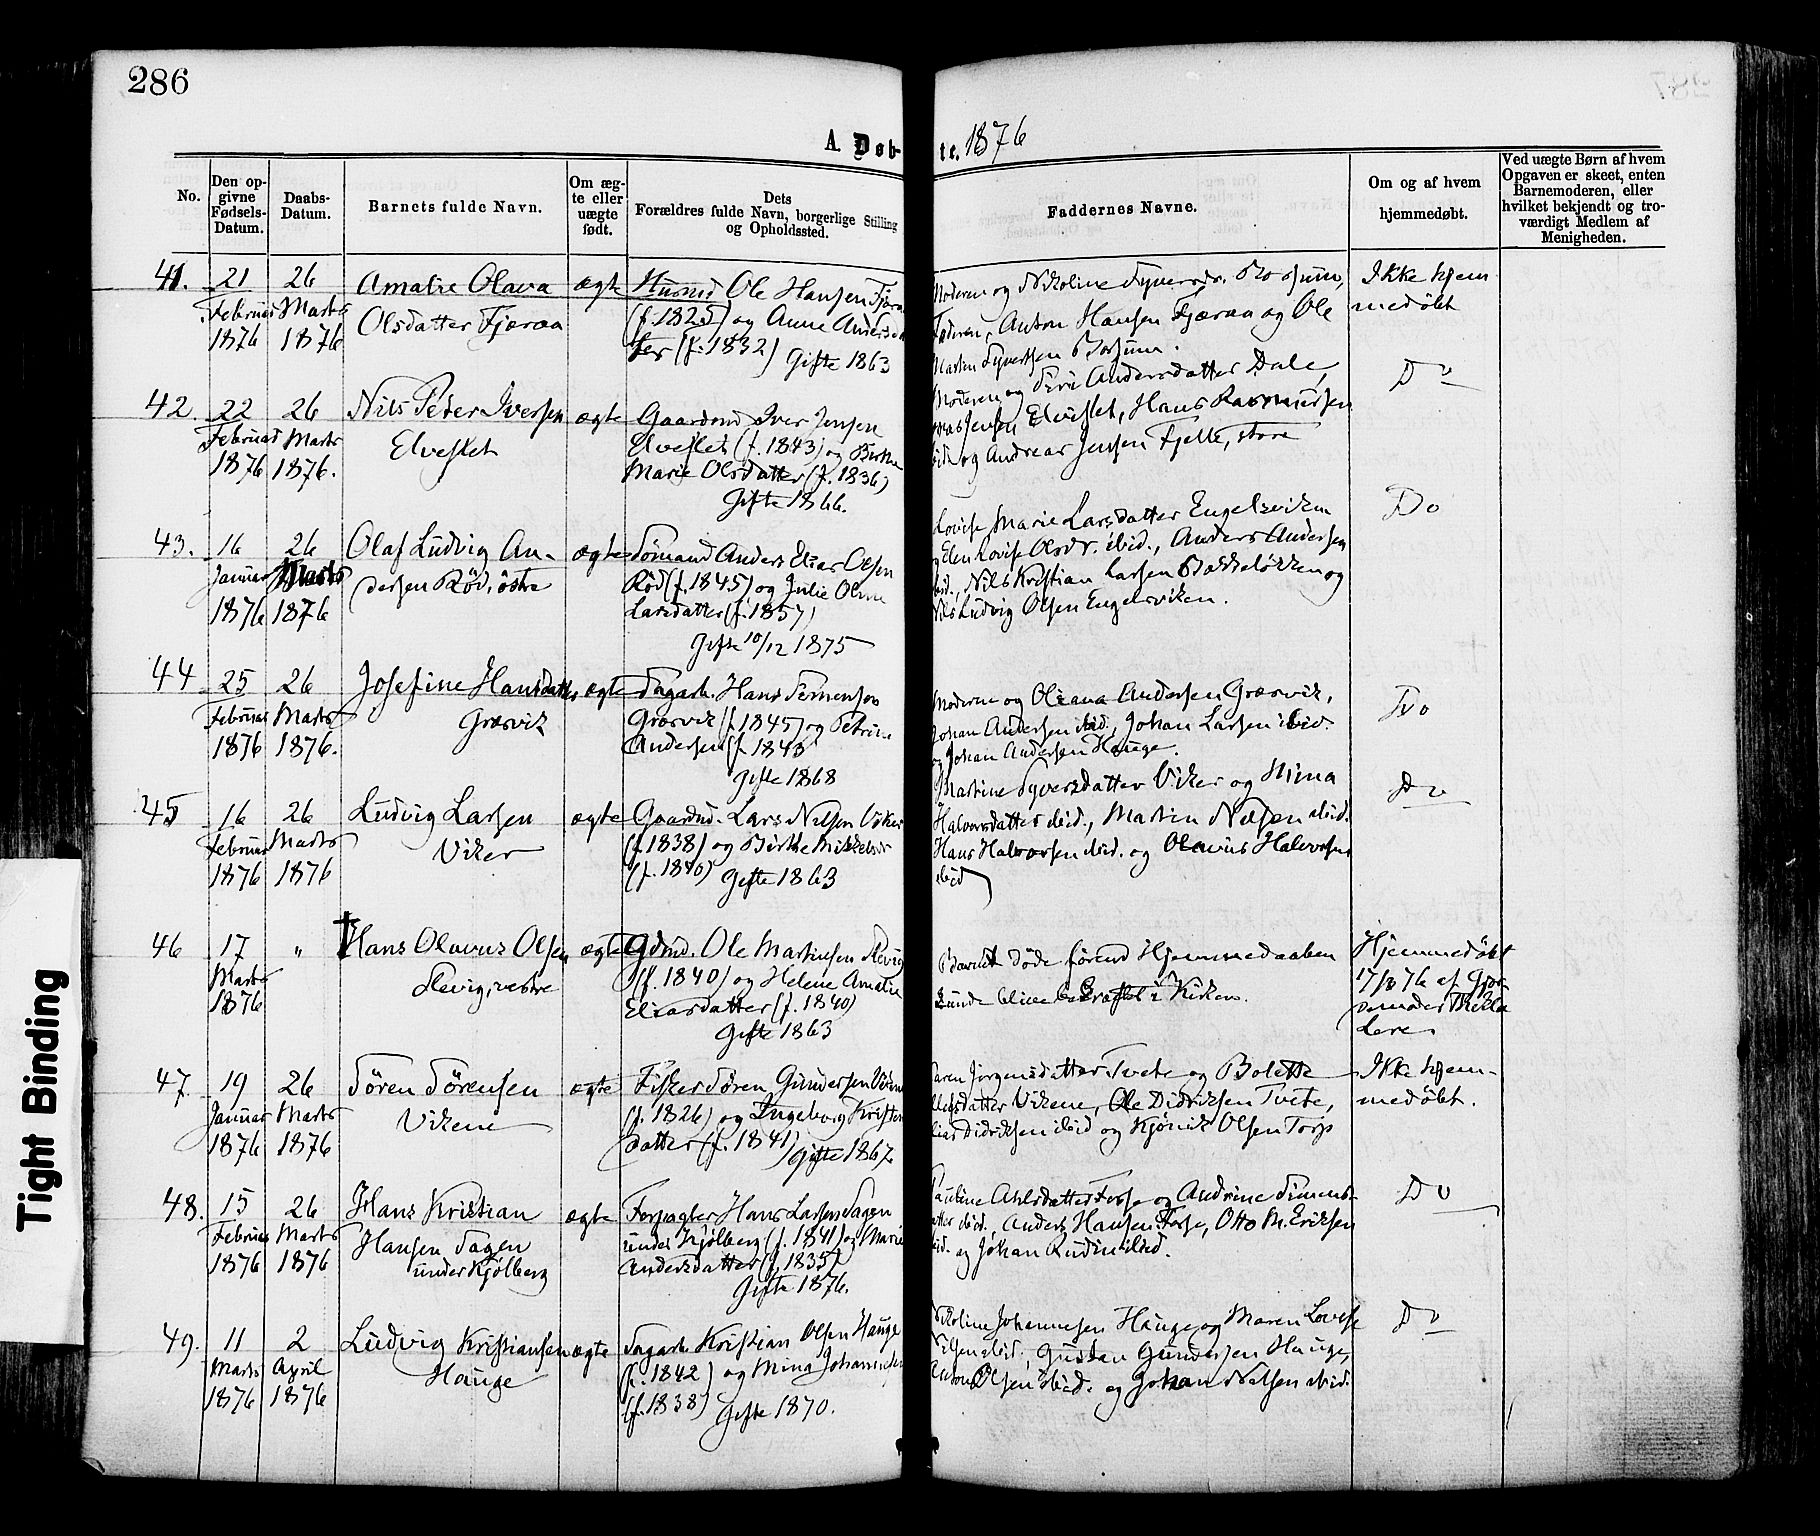 286
A. Døb-
te. 1876
No.
Den op-
givne
Fødsels-
Datum.
Daabs-
Datum.
Barnets fulde Navn.
Om æg-
te eller
uægte
født.
Dets
Forældres fulde Navn, borgerlige Stilling
og Opholdssted.
Faddernes Navne.
Om og af hvem
hjemmedøbt.
Ved uægte Børn af hvem
Opgaven er skeet, enten
Barnemoderen, eller
hvilket bekjendt og tro-
værdigt Medlem af
Menigheden.
41. 21 26 Amalie Olava ægte Husmd Ole Hansen Fjæraa
Februar Marts Olsdatter Fjæraa (f. 1825) og Anne Andersdat
1876 1876 ter (f. 1832) Gifte 1863
Moderen og Nikoline Syversdr. Borsum,
Faderen, Anton Hansen Fjæraa og Ole
Martin Syvertsen Borsum.
Ikke hjem
medøbt
42. 22 26 Nils Peder Iversen ægte Gaardmd Iver Jensen
Februar Marts Elveflet Elveflet (f. 1843) og Birthe
1876 1876. Marie Olsdatter (f. 1836)
Gifte 1866.
Moderen og Siri Andersdatter Dale,
Jensen Elveflet, Hans Rasmussen
og Andreas Jensen Fjelle, store
Do
43. 16 26 Olaf Ludvig An- ægte Sömand Anders Elias Olsen
Januar Marts dersen Röd, östre Röd (f. 1845) og Julie Oline
1876 1876 Larsdatter (f. 1857)
Gifte 10/12 1875
Lovise Marie Larsdatter Engelsviken
og Elen Lovise Olsdr. ibid., Anders Andersen
ibid., Nils Kristian Larsen Bakkeløkken og
Nils Ludvig Olsen Engelsviken.
Do
44 25 26 Josefine Hansdatter ægte Sagarb. Hans Simensen
Februar Marts Græsvik Græsvik (f. 1845) og Petrine
1876 1876. Andersen (f. 1843
Gifte 1868
Moderen og Oliana Andersen Græsvik,
Johan Andersen ibid, Johan Larsen ibid.
og Johan Andersen Hauge.
Do
45 16 26 Ludvig Larsen ægte Gaardmd. Lars Nilsen Viker
Februar Marts Viker (f. 1838) og Birthe Mikkelsdr
1876 1876 (f. 1840) Gifte 1863
Martine Syversdatter Viker og Mina
Halvorsdatter ibid., Martin Nilsen ibid.
Hans Halvorsen ibid. og Olavus Halvorsen
ibid
Do
46 17 " † Hans Olavus Olsen ægte Gdmd. Ole Martinsen Slevig
Marts Slevig, vestre (f. 1840) og Helene Amalie
1876 Eliasdatter (f. 1840)
Gifte 1863
Barnet döde förend Hjemmedaaben
kunde blive bekræftet i Kirken.
Hjemmedøbt
17/3 76 af Gjor-
demoder Thekla
47. 19 26 Sören Sörensen ægte Fisker Sören Gundersen Vikene
Januar Marts Vikene (f. 1826) og Ingeborg Kristens
1876 1876 datter (f. 1841) Gifte 1867.
Karen Jörgensdatter Tvete og Bolette
datter Vikene, Ole Didriksen Tvete,
Didriksen ibid og Kjönik Olsen Torp
Ikke hjem-
medøbt.
48. 15 26 Hans Kristian ægte Forpagter Hans Larsen Sagen
Februar Marts Hansen Sagen under Kjölberg (f. 1841) og Marie
1876 1876 under Kjölberg Andersdatter (f. 1835)
Gifte 1876.
Pauline Ahlsdatter Forse og Andrine Simens-
datter ibid., Anders Hansen Forse, Otto M. Eriksen
ibid. og Johan Rudin ibid.
Do
49. 11 2 Ludvig Kristiansen ægte Sagarb Kristian Olsen Hauge
Marts April Hauge (f. 1842) og Mina Johannesen
1876 1876 (f. 1838) Gifte 1870.
Nikoline Johannesen Hauge og Maren Lovise
Nilsen ibid, Gustav Gundersen Hauge,
Anton Olsen ibid. og Johan Nilsen ibid.
Do
Tight Binding